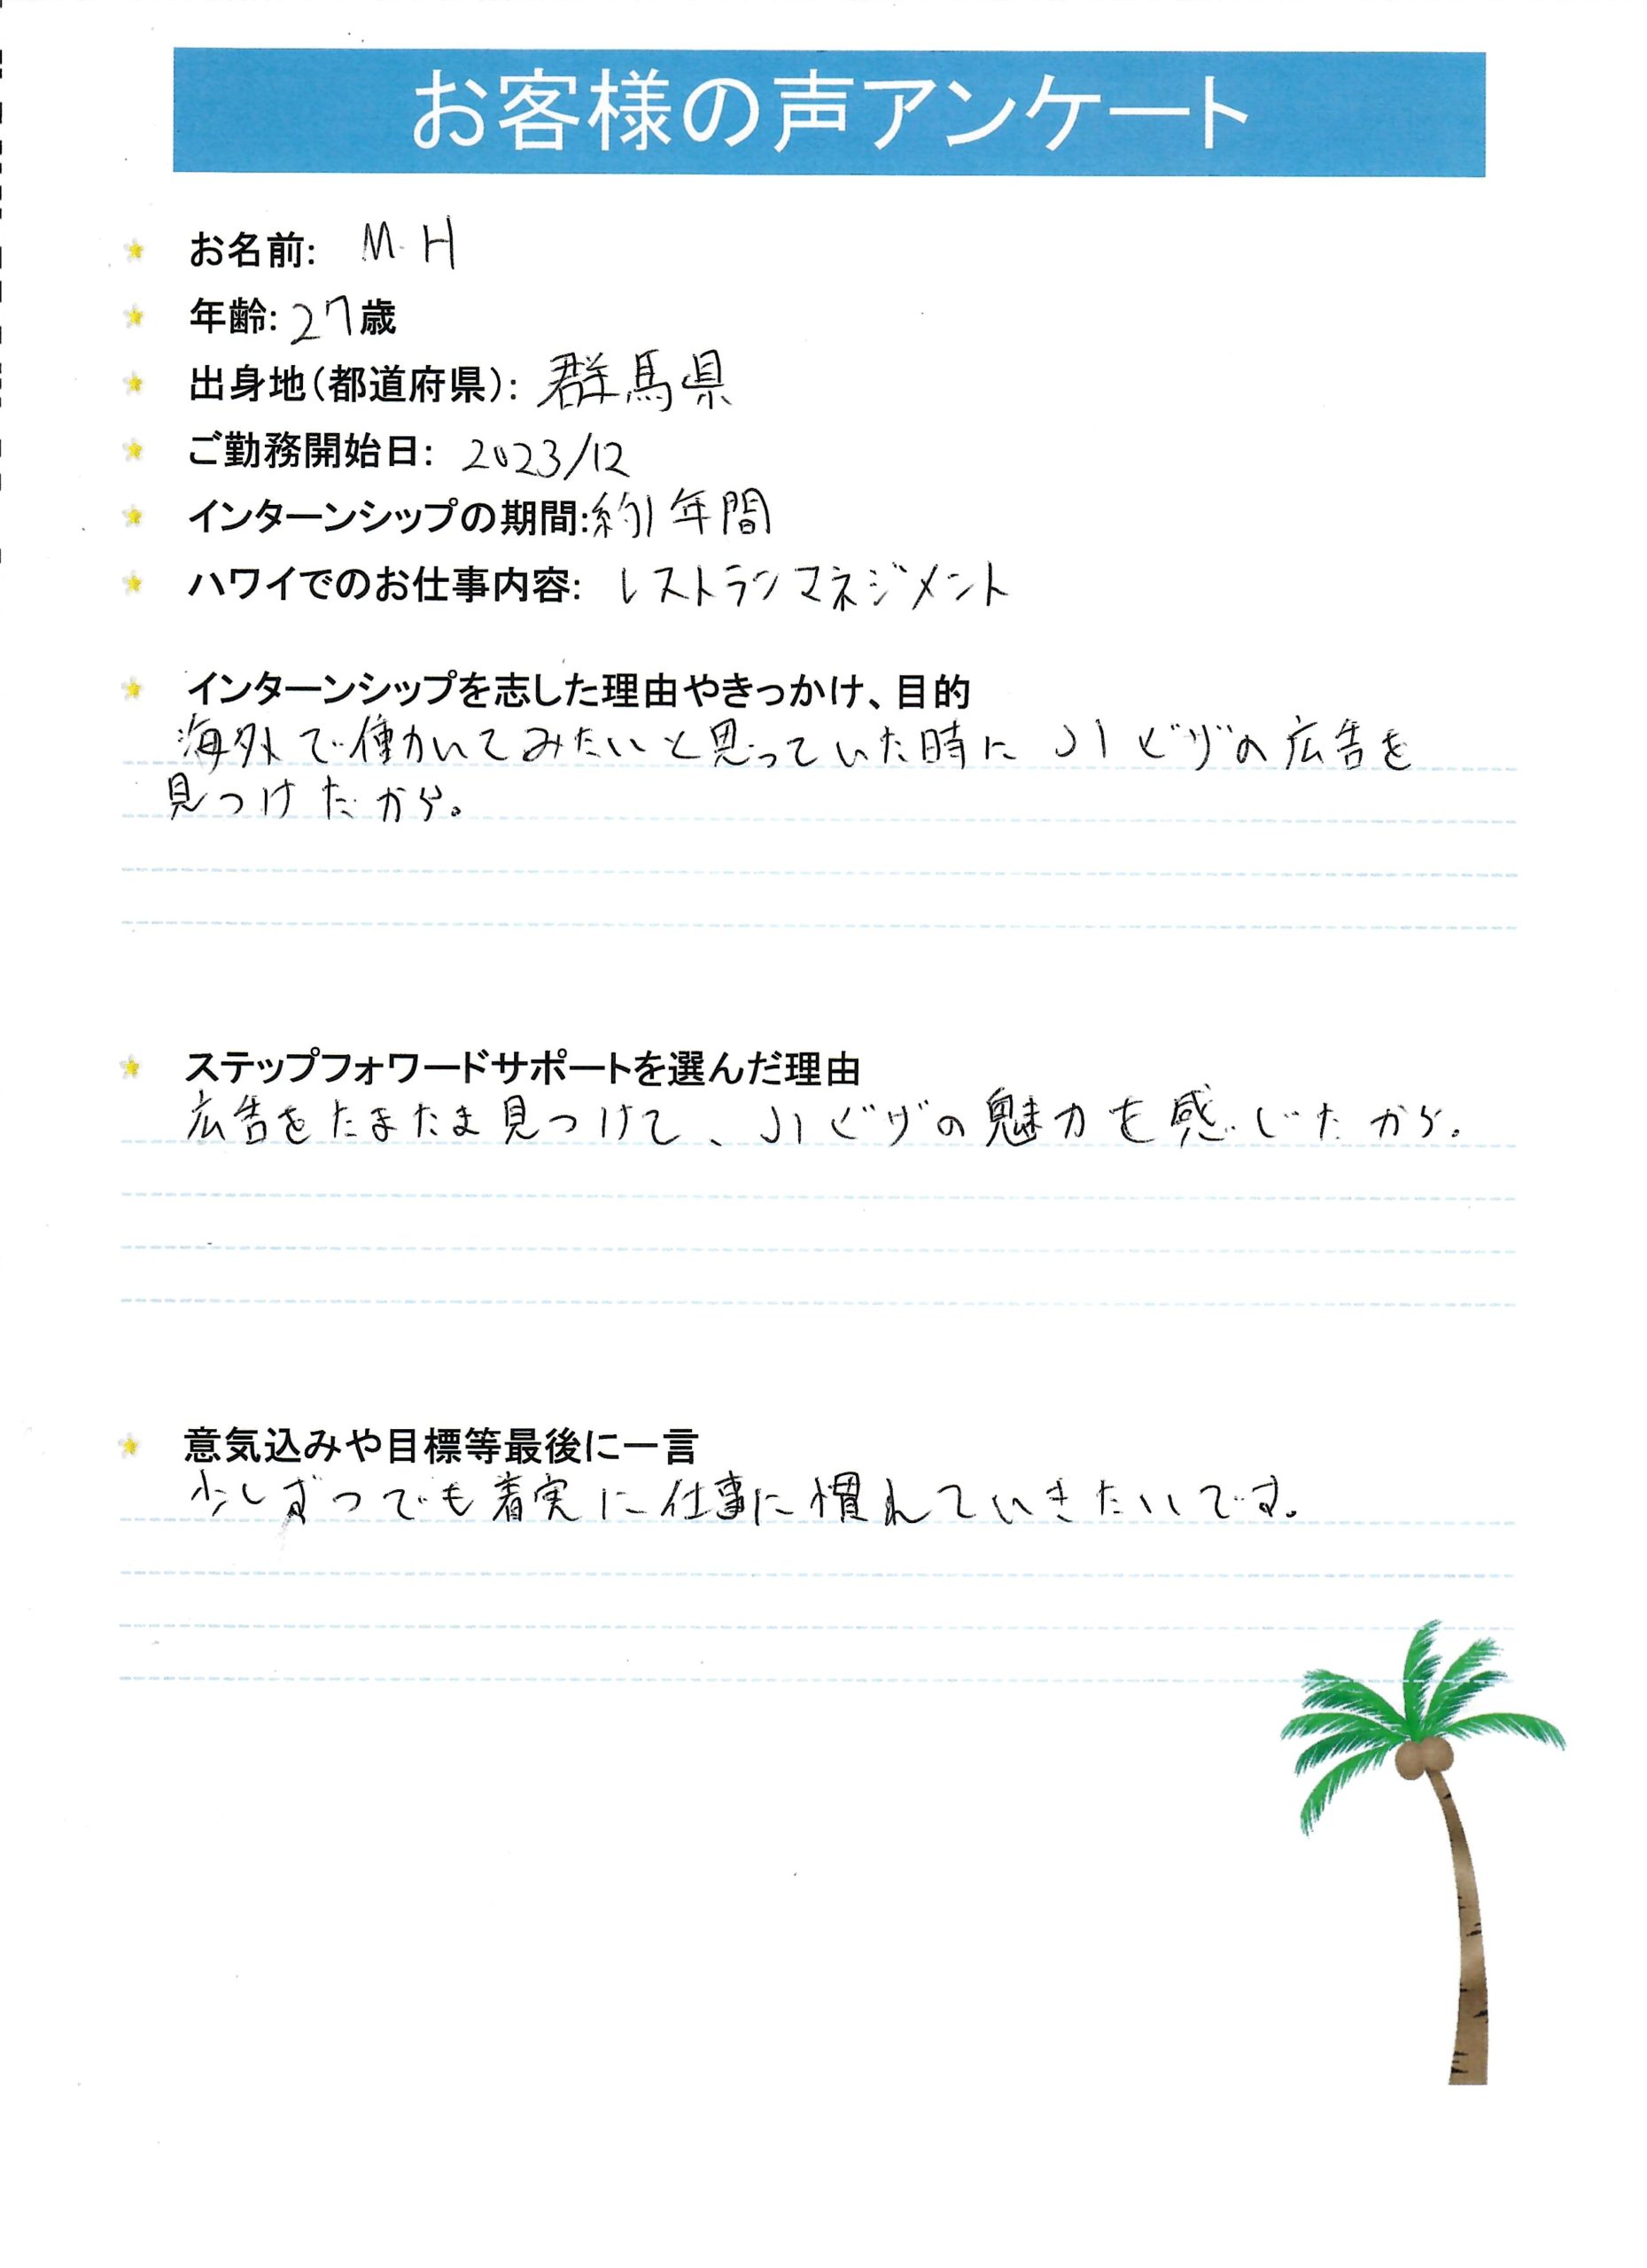 お客様の声アンケート
お名前: M.H
年齢: 27歳
出身地(都道府県): 群馬県
ご勤務開始日: 2023/12
インターンシップの期間:約1年間
ハワイでのお仕事内容: レストランマネジメント
インターンシップを志した理由やきっかけ、目的
海外で働かいてみたいと思っていた時にJ1ビザの広告を
見つけたから。
ステップフォワードサポートを選んだ理由
広告をたまたま見つけて、J1ビザの魅力を感じたから。
意気込みや目標等最後に一言
少しずつでも着実に仕事に慣れていきたいです。